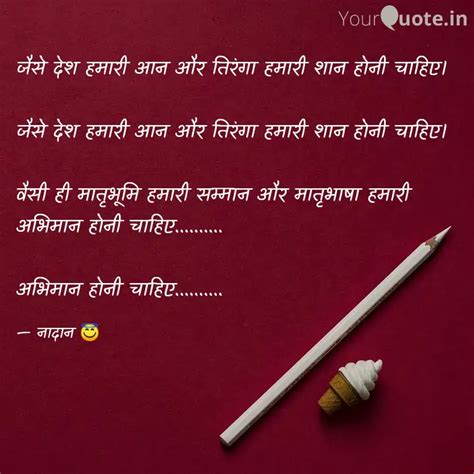 YourQuote.in
जैसे देश हमारी आन और तिरंगा हमारी शान होनी चाहिए।
जैसे देश हमारी आन और तिरंगा हमारी शान होनी चाहिए।
वैसी ही मातृभूमि हमारी सम्मान और मातृभाषा हमारी
अभिमान होनी चाहिए..........
अभिमान होनी चाहिए..........
— नादान 😇